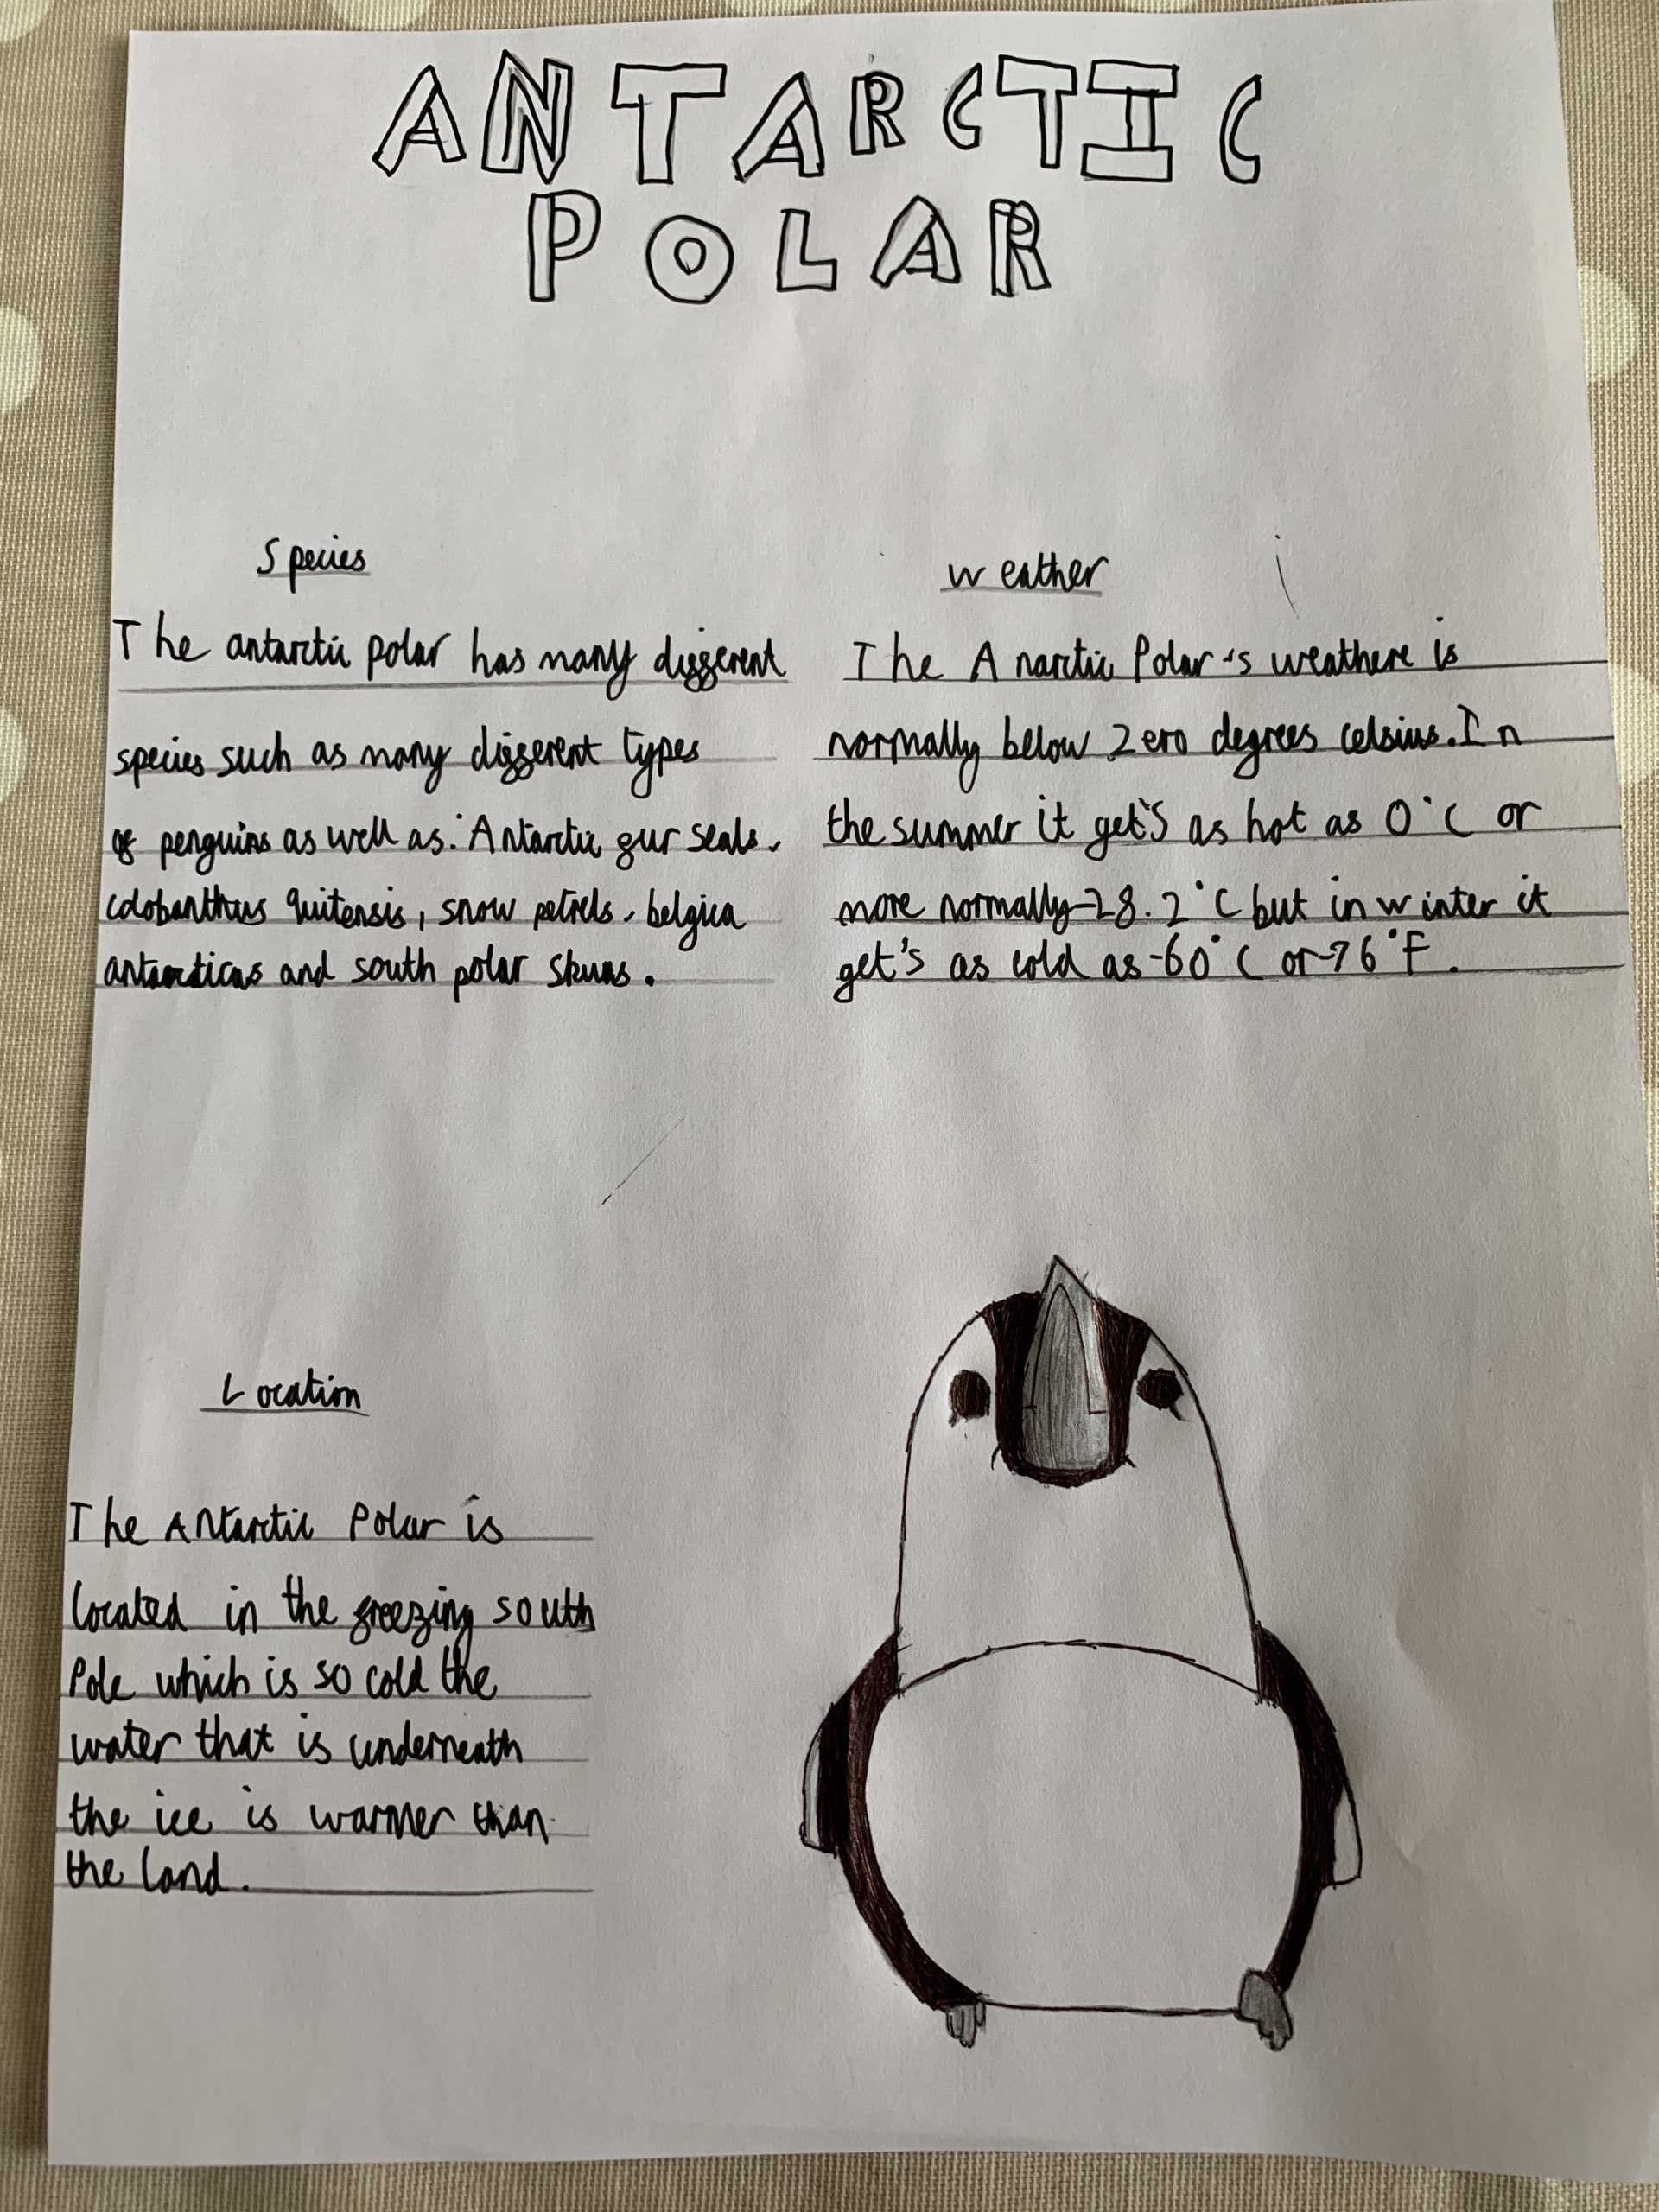 ANTARCTIC
POLAR
Species
The antarctic polar has many different
species such as many different types
of penguins as well as: Antarctic fur seals,
colobanthus quitensis, snow petrels, belgica
antarcticas and south polar skuas.
Weather
The Anarctic Polar's weathere is
normally below zero degrees celsius. In
the summer it get's as hot as 0°C or
more normally -28.2°C but in winter it
get's as cold as -60°C or -76°F.
Location
The Antarctic Polar is
located in the freezing south
Pole which is so cold the
water that is underneath
the ice is warmer than
the land.